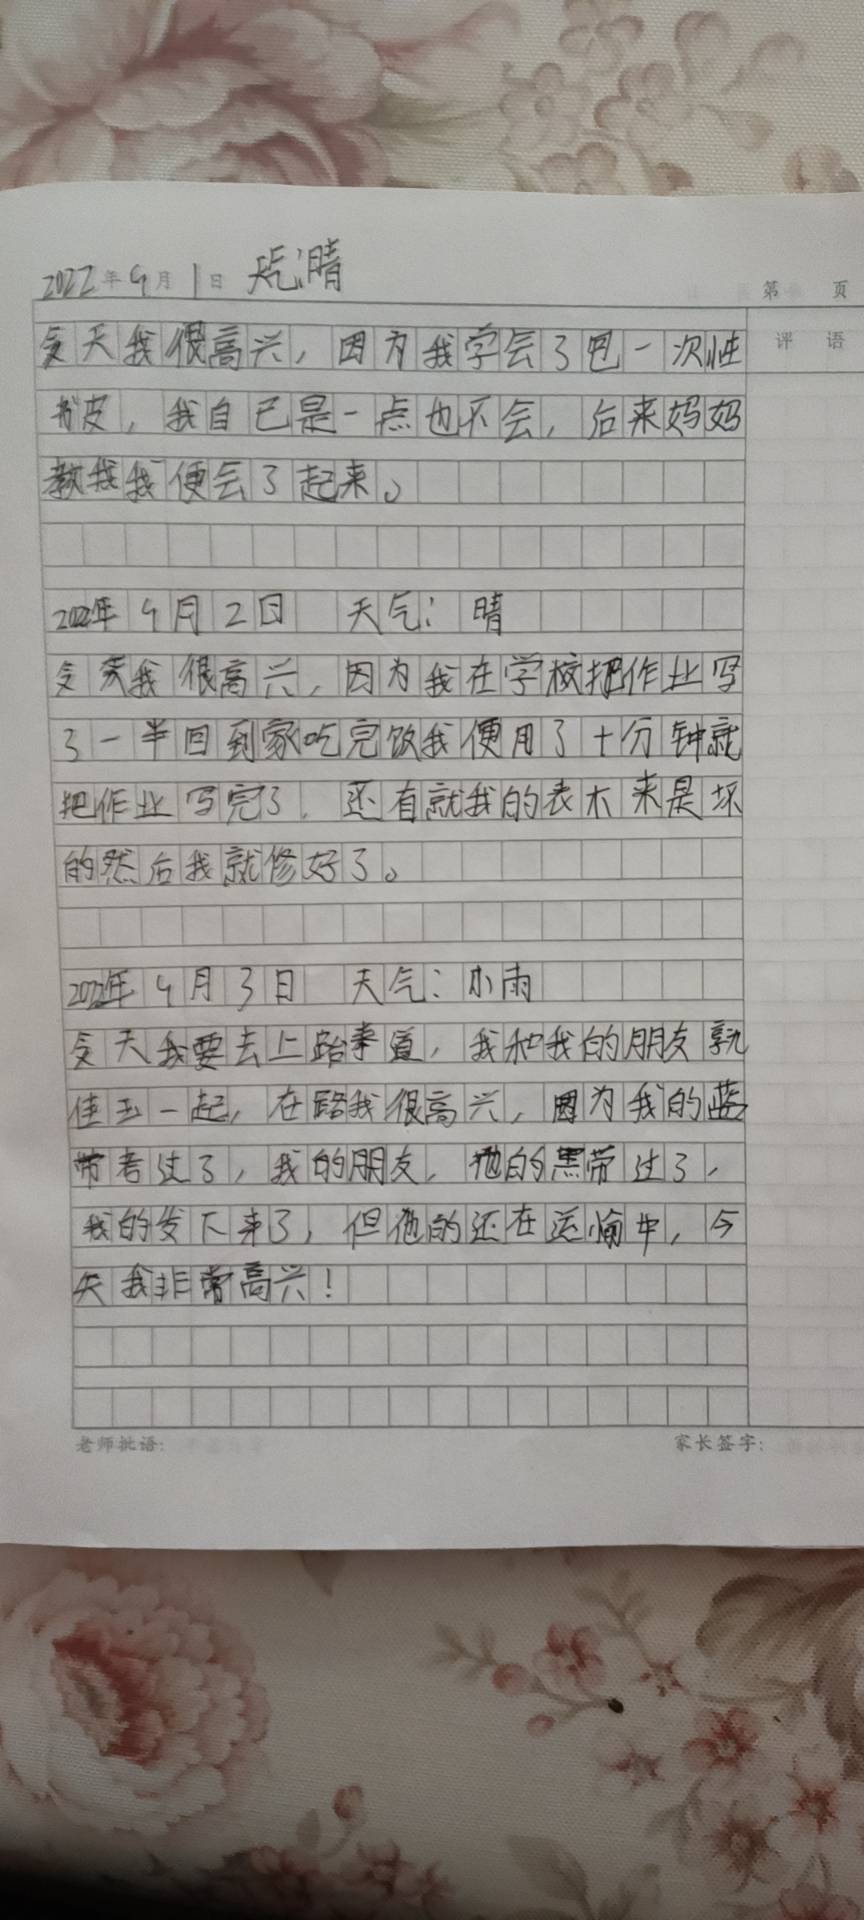 2022年9月1日 天气:晴
第 页
评语
今天我很高兴，因为我学会了包一次性
书皮，我自己是一点也不会，后来妈妈
教我我便会了起来。
2022年9月2日 天气：晴
今天我很高兴，因为我在学校把作业写
了一半回到家吃完饭我便用了十分钟就
把作业写完了，还有就我的表本来是坏
的然后我就修好了。
2022年9月3日 天气：小雨
今天我要去上跆拳道，我和我的朋友郭
佳玉一起，在路我很高兴，因为我的蓝
带考过了，我的朋友，他的黑带过了，
我的发下来了，但他的还在运输中，今
天我非常高兴！
老师批语： 家长签字：